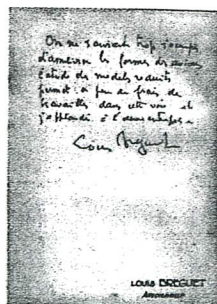 On ne saurait trop
d'améliorer les formes des avions
L'étude de modèles réduits
permet à peu de frais de
travailler dans cette voie et
j'applaudis à
Louis Breguet
LOUIS BREGUET